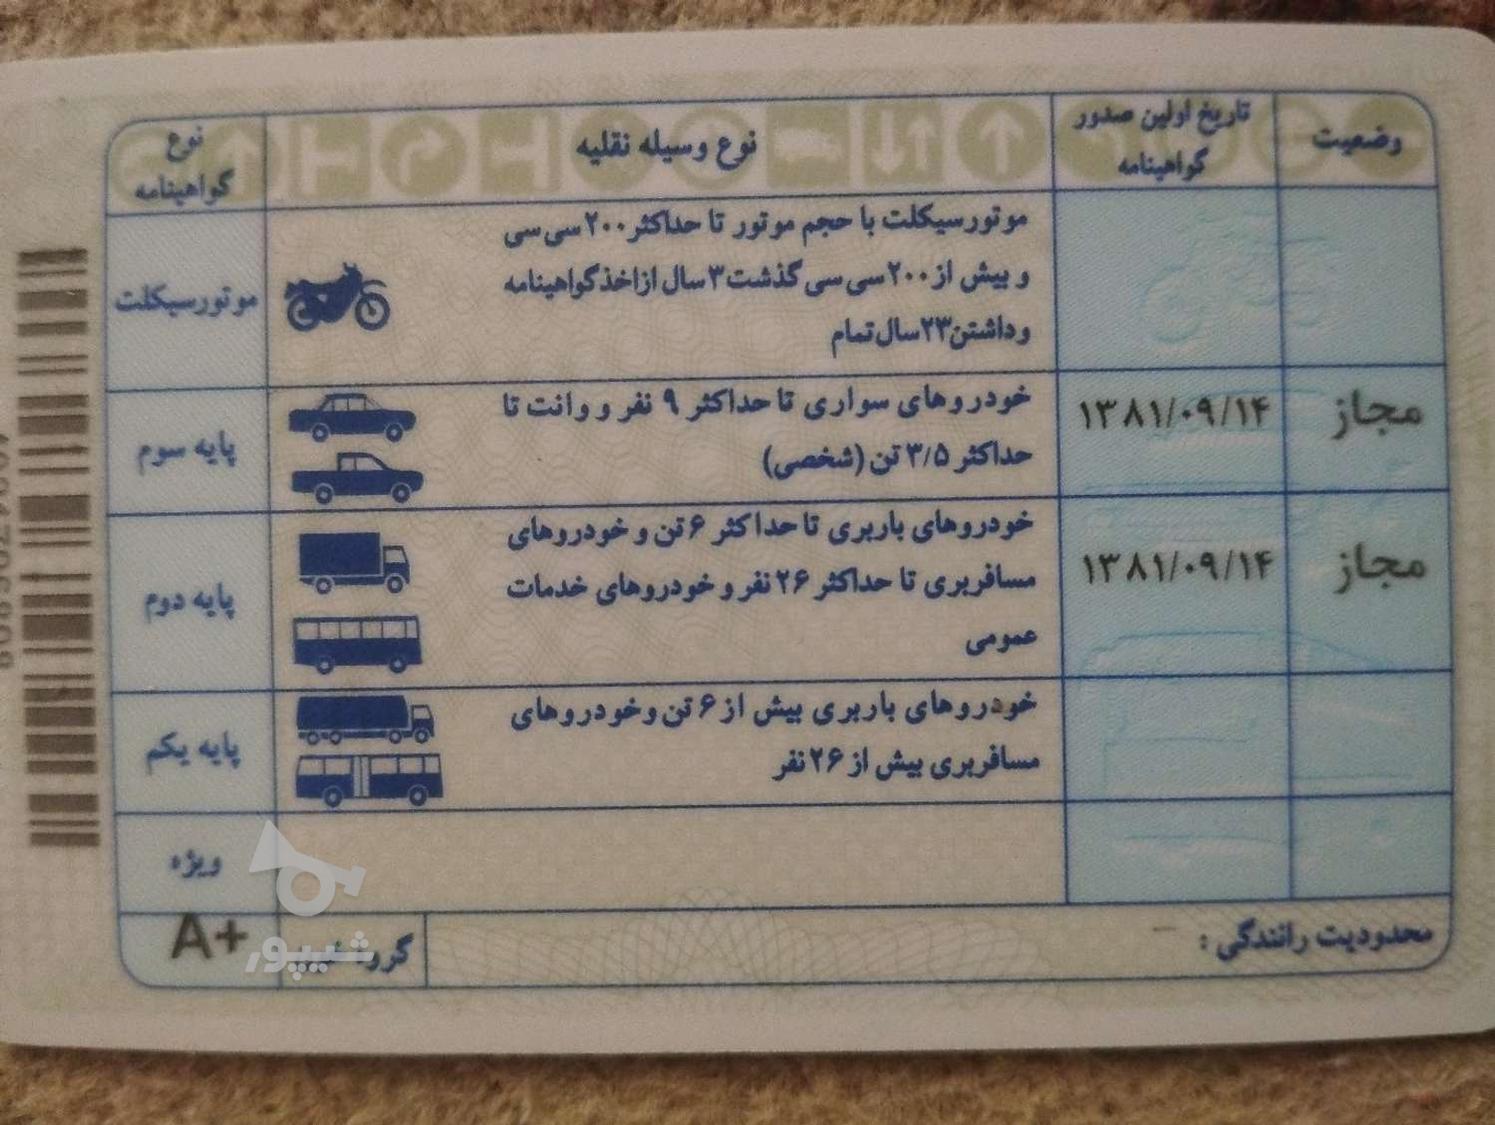 وضعیت
تاریخ اولین صدور
گواهینامه
نوع وسیله نقلیه
نوع
گواهینامه
موتورسیکلت با حجم موتور تا حداکثر ۲۰۰ سی سی
و بیش از ۲۰۰ سی سی گذشت ۳ سال از اخذ گواهینامه
و داشتن ۲۳ سال تمام
موتورسیکلت
مجاز
۱۳۸۱/۰۹/۱۴
خودروهای سواری تا حداکثر ۹ نفر و وانت تا
حداکثر ۳/۵ تن (شخصی)
پایه سوم
مجاز
۱۳۸۱/۰۹/۱۴
خودروهای باربری تا حداکثر ۶ تن و خودروهای
مسافربری تا حداکثر ۲۶ نفر و خودروهای خدمات
عمومی
پایه دوم
خودروهای باربری بیش از ۶ تن و خودروهای
مسافربری بیش از ۲۶ نفر
پایه یکم
ویژه
محدودیت رانندگی : –
گروه
A+
شیپور